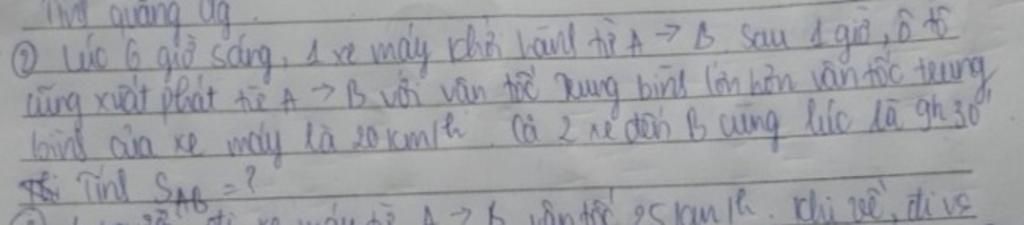 quãng đg.
② Lúc 6 giờ sáng, 1 xe máy khởi hành từ A → B sau 1 giờ, ô tô
cũng xuất phát từ A → B với vận tốc trung bình lớn hơn vận tốc trung
bình của xe máy là 20 km/h. Cả 2 xe đến B cùng lúc là 9h30'
Tính S_AB = ?
xe máy từ A → B vận tốc 25 km/h. Khi về, đi vs